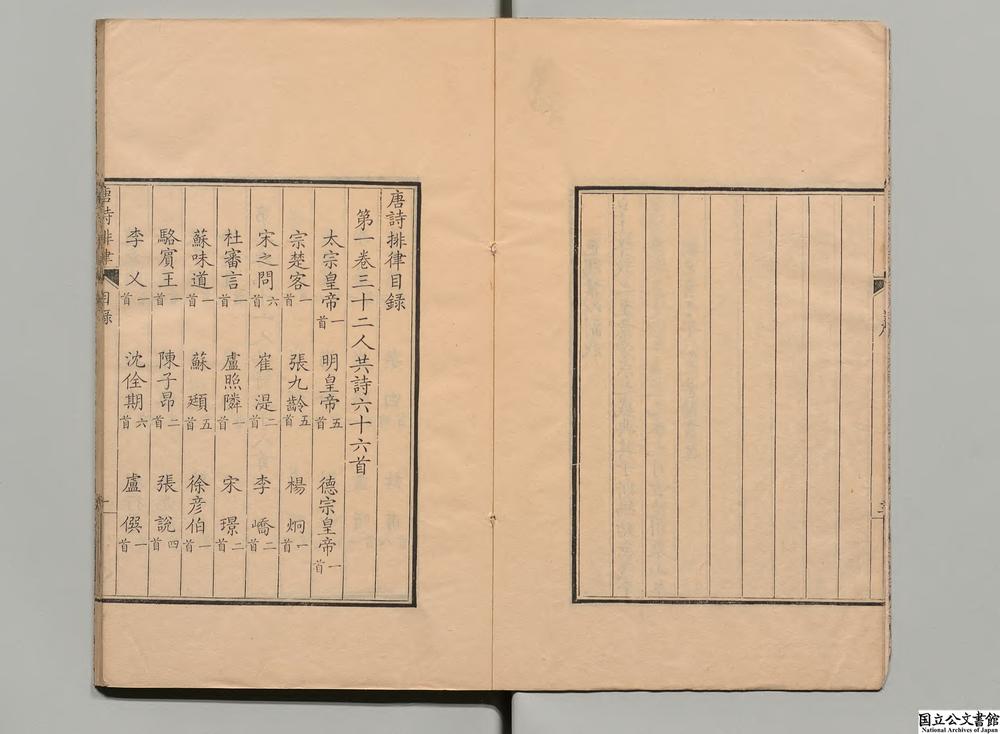 唐詩排律目録
第一卷三十二人共詩六十六首
太宗皇帝一首 明皇帝五首 德宗皇帝一首
宗楚客一首 張九齡五首 楊炯一首
宋之問六首 崔湜二首 李嶠二首
杜審言一首 盧照隣一首 宋璟二首
蘇味道一首 蘇頲五首 徐彦伯一首
駱賓王一首 陳子昂二首 張說四首
李乂一首 沈佺期六首 盧僎一首
唐詩排律 目録 一
国立公文書館
National Archives of Japan